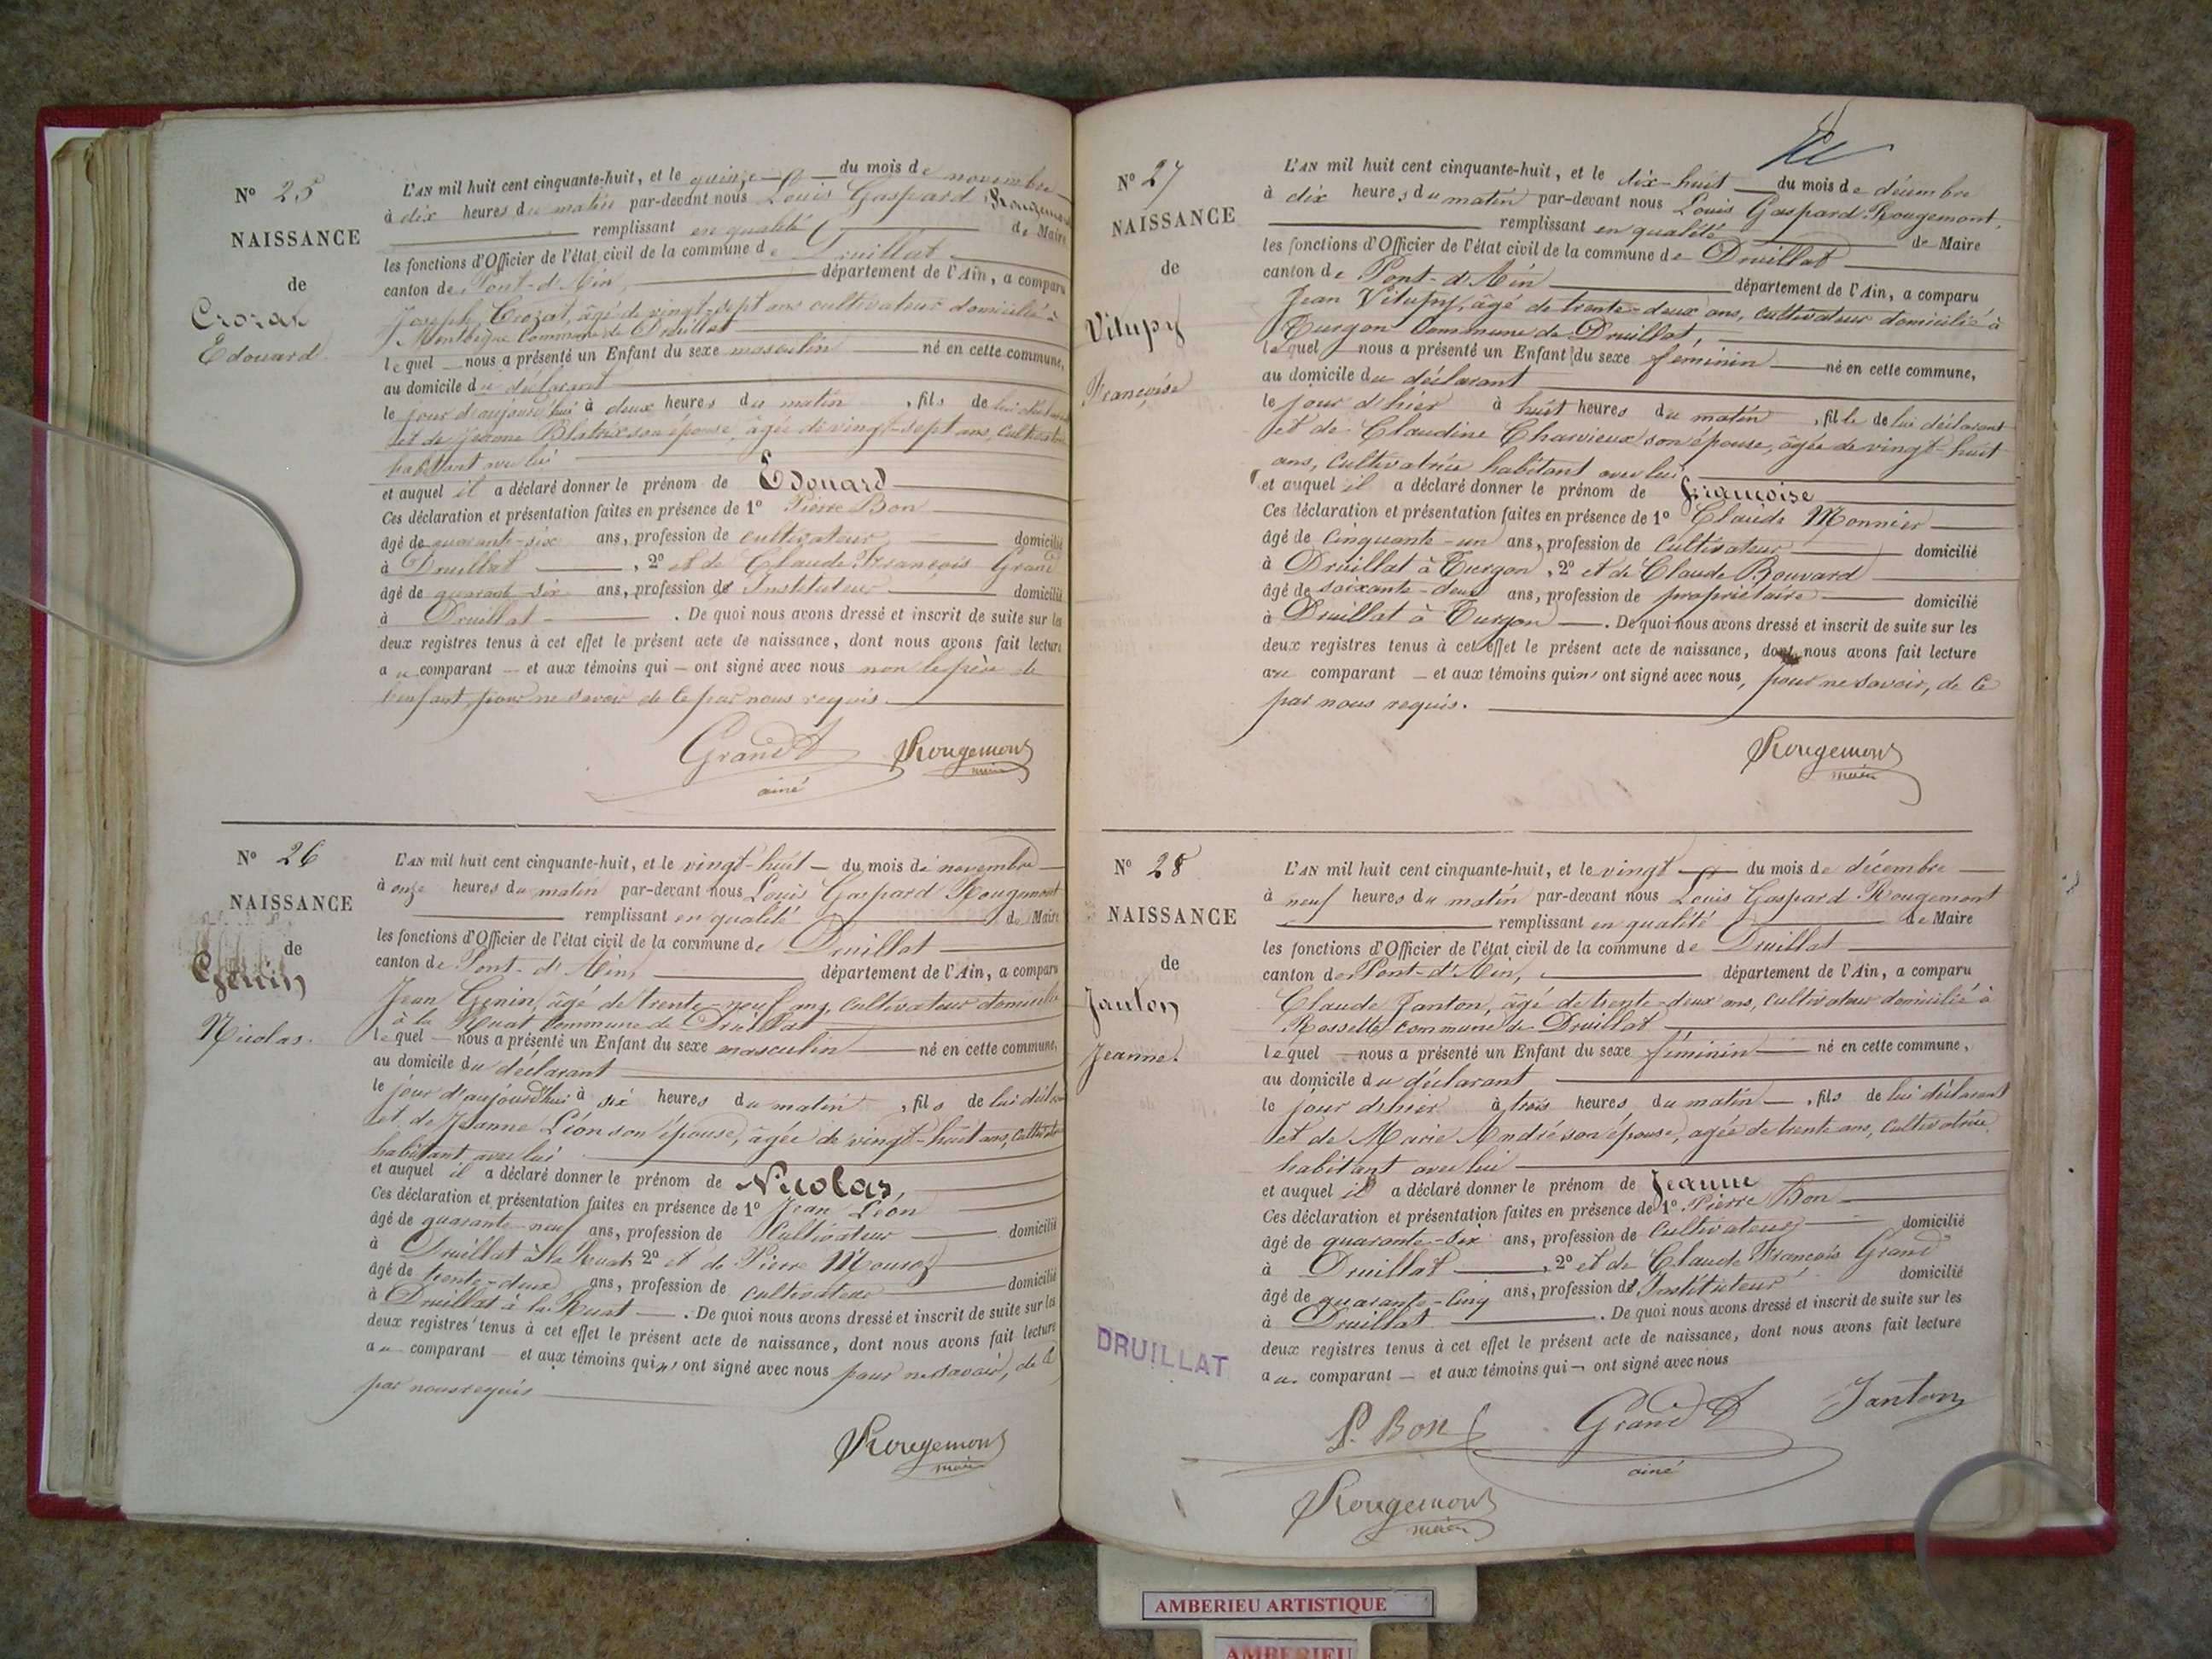 N° 25
NAISSANCE
de
Crozat
Edouard
L'AN mil huit cent cinquante-huit, et le quinze du mois de novembre
à dix heures du matin par-devant nous Louis Gaspard Rougemont
remplissant en qualité de Maire
les fonctions d'Officier de l'état civil de la commune de Druillat
canton de Pont-d'Ain, département de l'Ain, a comparu
Joseph Crozat, âgé de vingt-sept ans cultivateur domicilié à
Commune de Druillat
lequel nous a présenté un Enfant du sexe masculin né en cette commune,
au domicile du déclarant
le jour d'aujourd'hui à deux heures du matin, fils de lui déclarant
et de Jeanne Blatrix son épouse, âgée de vingt-sept ans, cultivatrice
habitant avec lui
et auquel il a déclaré donner le prénom de Edouard
Ces déclaration et présentation faites en présence de 1° Pierre Bon
âgé de quarante-six ans, profession de cultivateur domicilié
à Druillat, 2° et de Claude François Grand
âgé de quarante-six ans, profession de Instituteur domicilié
à Druillat. De quoi nous avons dressé et inscrit de suite sur les
deux registres tenus à cet effet le présent acte de naissance, dont nous avons fait lecture
au comparant et aux témoins qui ont signé avec nous non le père de
l'enfant pour ne savoir de ce par nous requis.
Grand Rougemont
ainé maire
N° 26
NAISSANCE
de
Genin
Nicolas.
L'AN mil huit cent cinquante-huit, et le vingt-huit du mois de novembre
à onze heures du matin par-devant nous Louis Gaspard Rougemont
remplissant en qualité de Maire
les fonctions d'Officier de l'état civil de la commune de Druillat
canton de Pont-d'Ain, département de l'Ain, a comparu
Jean Genin, âgé de trente-neuf ans, cultivateur domicilié
à la Ruat commune de Druillat
lequel nous a présenté un Enfant du sexe masculin né en cette commune,
au domicile du déclarant
le jour d'aujourd'hui à six heures du matin, fils de lui déclarant
et de Jeanne Léon son épouse, âgée de vingt-huit ans, cultivatrice
habitant avec lui
et auquel il a déclaré donner le prénom de Nicolas,
Ces déclaration et présentation faites en présence de 1° Jean Léon
âgé de quarante-neuf ans, profession de Cultivateur domicilié
à Druillat à la Ruat, 2° et de Pierre
âgé de trente-deux ans, profession de cultivateur domicilié
à Druillat à la Ruat. De quoi nous avons dressé et inscrit de suite sur les
deux registres tenus à cet effet le présent acte de naissance, dont nous avons fait lecture
au comparant et aux témoins qui n'ont signé avec nous pour ne savoir, de ce
par nous requis
Rougemont
maire
N° 27
NAISSANCE
de
Vitupy
Françoise
L'AN mil huit cent cinquante-huit, et le dix-huit du mois de décembre
à dix heures du matin par-devant nous Louis Gaspard Rougemont,
remplissant en qualité de Maire
les fonctions d'Officier de l'état civil de la commune de Druillat
canton de Pont-d'Ain département de l'Ain, a comparu
Jean Vitupy, âgé de trente-deux ans, cultivateur domicilié à
Turgon Commune de Druillat,
lequel nous a présenté un Enfant du sexe féminin né en cette commune,
au domicile du déclarant
le jour d'hier à huit heures du matin, fille de lui déclarant
et de Claudine Charvieux son épouse, âgée de vingt-huit
ans, cultivatrice habitant avec lui
et auquel il a déclaré donner le prénom de Françoise
Ces déclaration et présentation faites en présence de 1° Claude Monnier
âgé de Cinquante-un ans, profession de Cultivateur domicilié
à Druillat à Turgon, 2° et de Claude Bouvard
âgé de soixante-deux ans, profession de propriétaire domicilié
à Druillat à Turgon. De quoi nous avons dressé et inscrit de suite sur les
deux registres tenus à cet effet le présent acte de naissance, dont nous avons fait lecture
au comparant et aux témoins qui n'ont signé avec nous, pour ne savoir, de ce
par nous requis.
Rougemont
maire
N° 28
NAISSANCE
de
Janton
Jeanne.
L'AN mil huit cent cinquante-huit, et le vingt du mois de décembre
à neuf heures du matin par-devant nous Louis Gaspard Rougemont
remplissant en qualité de Maire
les fonctions d'Officier de l'état civil de la commune de Druillat
canton de Pont-d'Ain, département de l'Ain, a comparu
Claude Janton, âgé de trente-deux ans, cultivateur domicilié à
Rossette commune de Druillat
lequel nous a présenté un Enfant du sexe féminin né en cette commune,
au domicile du déclarant
le jour d'hier à trois heures du matin, fils de lui déclarant
et de Marie André son épouse, âgée de trente ans, cultivatrice,
habitant avec lui
et auquel il a déclaré donner le prénom de Jeanne
Ces déclaration et présentation faites en présence de 1° Pierre Bon
âgé de quarante-six ans, profession de Cultivateur domicilié
à Druillat, 2° et de Claude François Grand
âgé de quarante-cinq ans, profession de Instituteur domicilié
à Druillat. De quoi nous avons dressé et inscrit de suite sur les
deux registres tenus à cet effet le présent acte de naissance, dont nous avons fait lecture
au comparant et aux témoins qui ont signé avec nous
P. Bon Grand Janton
ainé
Rougemont
maire
DRUILLAT
AMBERIEU ARTISTIQUE
AMBERIEU